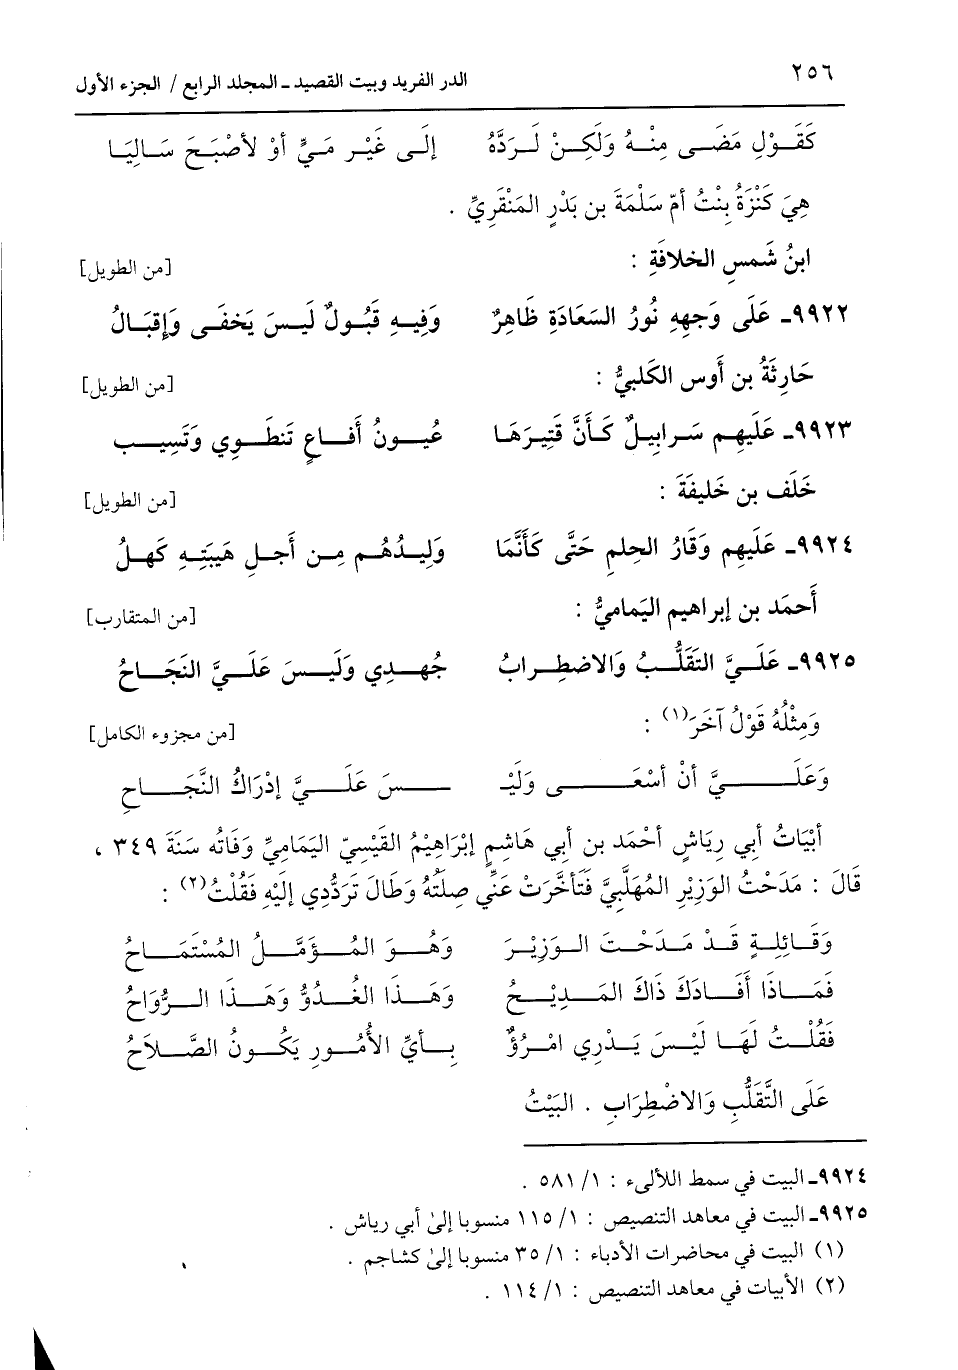 ٢٥٦ الدر الفريد وبيت القصيد ـ المجلد الرابع / الجزء الأول
كَقَوْلِ مَضَى مِنْهُ وَلَكِنْ لَرَدَّهُ إِلَى غَيْرِ مَيٍّ أوْ لأصْبَحَ سَالِيَا
هِيَ كَنْزَةُ بِنْتُ أمّ سَلْمَةَ بن بَدْرٍ المَنْقَرِيِّ .
ابنُ شَمسِ الخلافَةِ : [من الطويل]
٩٩٢٢ـ عَلَى وَجهِهِ نُورُ السَعَادَةِ ظَاهِرٌ وَفِيهِ قَبُولٌ لَيسَ يَخفَى وَإِقبَالُ
حَارِثَةُ بن أَوس الكَلبيُّ : [من الطويل]
٩٩٢٣ـ عَلَيهِم سَرابِيلٌ كَأَنَّ قَتِيرَهَا عُيونُ أَفاعٍ تَنطَوِي وَتَسِيب
خلَف بن خَليفَةَ : [من الطويل]
٩٩٢٤ـ عَلَيهِم وَقَارُ الحِلمِ حَتَّى كَأَنَّمَا وَلِيدُهُم مِن أَجلِ هَيبَتِهِ كَهلُ
أَحمَد بن إبراهيم اليَماميُّ : [من المتقارب]
٩٩٢٥ـ عَلَيَّ التَقَلُّبُ وَالاضطِرابُ جُهدِي وَلَيسَ عَلَيَّ النَجَاحُ
وَمِثْلُهُ قَوْلُ آخَرَ(١) : [من مجزوء الكامل]
وَعَلَيَّ أنْ أسْعَى وَلَيْـ ـسَ عَلَيَّ إدْرَاكُ النَّجَاحِ
أبْيَاتُ أبي رِيَاشٍ أحْمَد بن أبي هَاشِمٍ إبْرَاهِيْمُ القَيْسِيّ اليَمَامِيِّ وَفَاتُه سَنَةَ ٣٤٩ ،
قَالَ : مَدَحْتُ الوَزِيْرِ المُهَلَّبِيَّ فَتَأخَّرَتْ عَنِّي صِلَتُهُ وَطَالَ تَرَدُّدِي إلَيْهِ فَقُلْتُ(٢) :
وَقَائِلِةٍ قَدْ مَدَحْتَ الوَزِيْرَ وَهُوَ المُؤَمَّلُ المُسْتَمَاحُ
فَمَاذَا أفَادَكَ ذَاكَ المَدِيْحُ وَهَذَا الغُدُوُّ وَهَذَا الرُّوَاحُ
فَقُلْتُ لَهَا لَيْسَ يَدْرِي امْرُؤٌ بِأيِّ الأُمُورِ يَكُونُ الصَّلاَحُ
عَلَى التَّقَلُّبِ وَالاضْطِرَابِ . البَيْتُ
٩٩٢٤ـ البيت في سمط اللألىء : ١/ ٥٨١ .
٩٩٢٥ـ البيت في معاهد التنصيص : ١/ ١١٥ منسوبا إلىٰ أبي رياش .
(١) البيت في محاضرات الأدباء : ١/ ٣٥ منسوبا إلىٰ كشاجم .
(٢) الأبيات في معاهد التنصيص : ١/ ١١٤ .